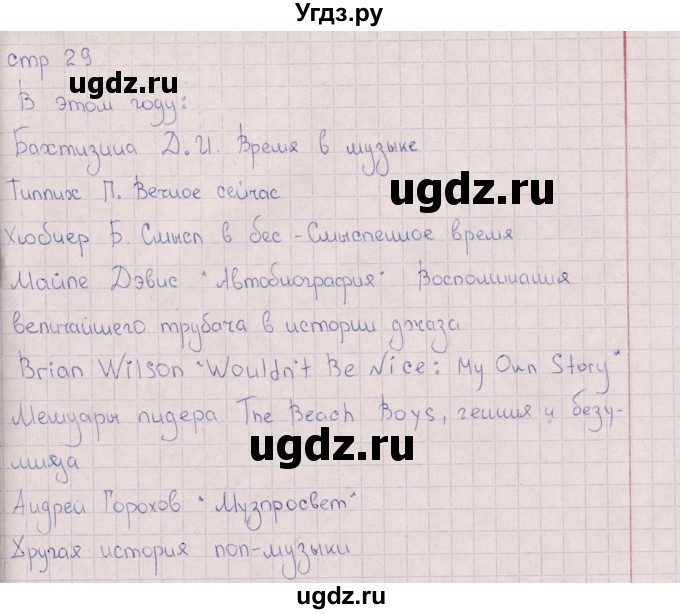 Угдз.ру
стр 29
ugdz.ru
В этом году:
Бахтизина Д.И. Время в музыке
Тиллих П. Вечное сейчас
ugdz.ru
Хюбнер Б. Смысл в бес-Смысленное время
Майлс Дэвис "Автобиография" Воспоминания
величайшего трубача в истории джаза
ugdz.ru
Brian Wilson "Wouldn't Be Nice: My Own Story"
Мемуары лидера The Beach Boys, гения и безу-
ugdz.ru
мица
Андрей Горохов "Музпросвет"
Другая история поп-музыки
ugdz.ru